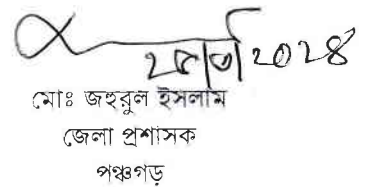 ২৫/৩/২০২৪
মোঃ জহুরুল ইসলাম
জেলা প্রশাসক
পঞ্চগড়